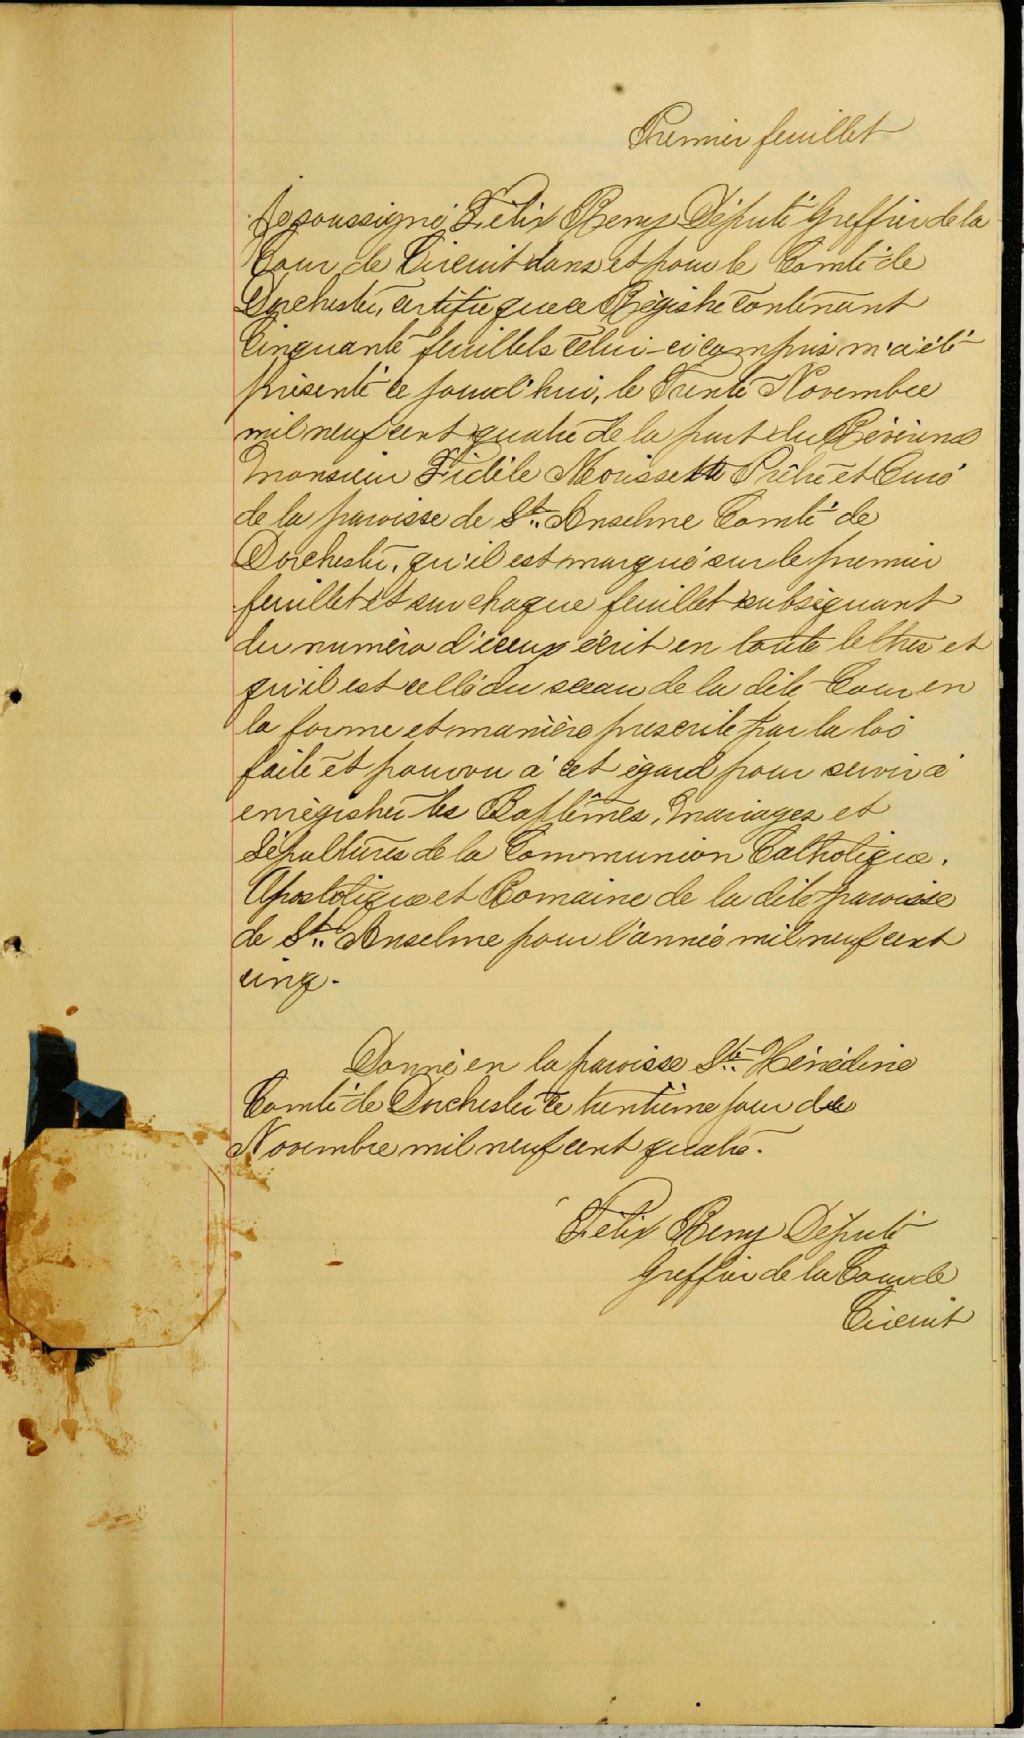 Premier feuillet
Je soussigné, Félix Remy Député Greffier de la
Cour de Circuit dans et pour le Comté de
Dorchester, certifie que ce Régistre contenant
Cinquante feuillets celui-ci compris m'a été
présenté ce jourd'hui, le Trente Novembre
mil neuf cent quatre de la part du Révérend
Monsieur Fidèle Morissette Prêtre et Curé
de la paroisse de St. Anselme Comté de
Dorchester, qu'il est marqué sur le premier
feuillet et sur chaque feuillet subséquant
du numéro d'iceux écrit en toute lettres et
qu'il est cellé du sceau de la dite Cour en
la forme et manière prescrite par la loi
faite et pourvu à cet égard pour servir à
enrégistrer les Baptêmes, Mariages et
Sépultures de la Communion Catholique.
Apostolique et Romaine de la dite paroisse
de St. Anselme pour l'année mil neuf cent
cinq.
Donné en la paroisse Ste. Hénédine
Comté de Dorchester ce trentième jour de
Novembre mil neuf cent quatre.
Félix Remy Député
Greffier de la Cour de
Circuit